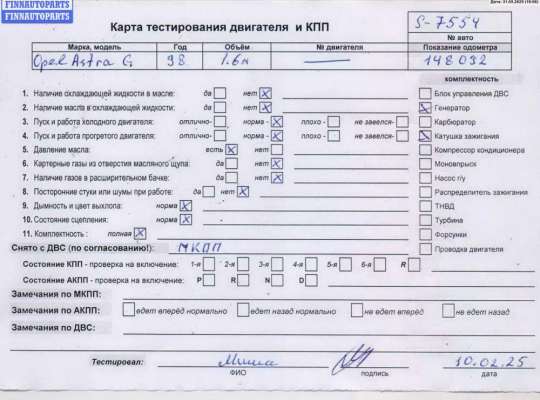 FINNAUTOPARTS
FINNAUTOPARTS
Дата: 31.03.2025
Карта тестирования двигателя и КПП
S-7554
№ авто
Марка, модель Год Объём № двигателя Показание одометра
Opel Astra G 98 1.6и 148032
комплектность
1. Наличие охлаждающей жидкости в масле: да нет X
Блок управления ДВС
2. Наличие масла в охлаждающей жидкости: да нет X
Генератор
3. Пуск и работа холодного двигателя: отлично- норма - X плохо - не завелся-
Карбюратор
4. Пуск и работа прогретого двигателя: отлично- норма - X плохо - не завелся-
Катушка зажигания
5. Давление масла: есть X нет
Компрессор кондиционера
6. Картерные газы из отверстия масляного щупа: да нет X
Моновпрыск
7. Наличие газов в расширительном бачке: да нет X
Насос г/у
8. Посторонние стуки или шумы при работе: да нет X
Распределитель зажигания
9. Дымность и цвет выхлопа: норма X
ТНВД
10. Состояние сцепления: норма X
Турбина
11. Комплектность : полная X
Форсунки
Снято с ДВС (по согласованию!): МКПП
Проводка двигателя
Состояние КПП - проверка на включение: 1-я 2-я 3-я 4-я 5-я 6-я R
Состояние АКПП - проверка на включение: P R N D
Замечания по МКПП:
Замечания по АКПП: едет вперёд нормально едет назад нормально не едет вперёд не едет назад
Замечания по ДВС:
Тестировал: Миша 10.02.25
ФИО подпись дата